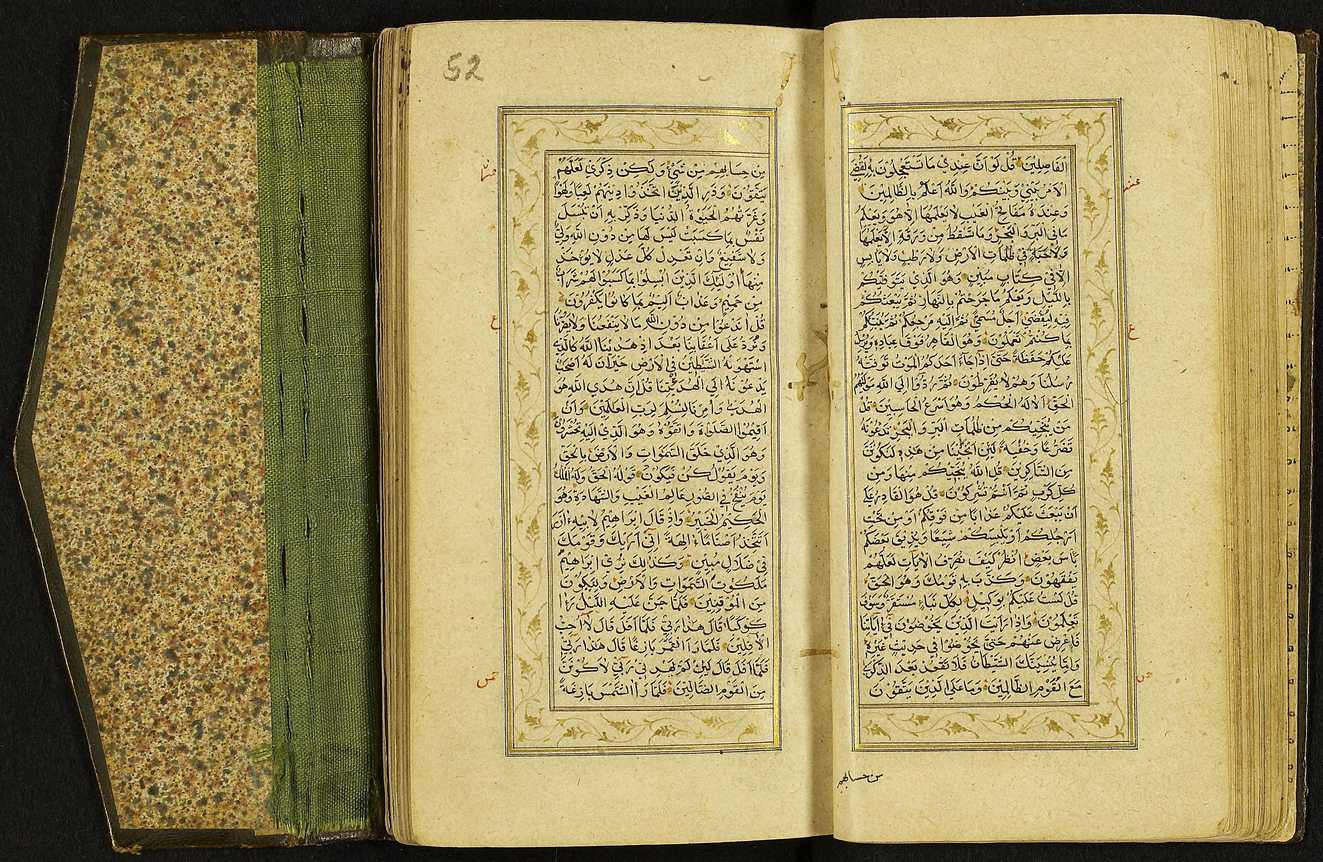 الفَاصِلِينَ قُلْ لَوْ اَنَّ عِنْدِي مَا تَسْتَعْجِلُونَ بِهِ لَقُضِيَ
الْاَمْرُ بَيْنِي وَبَيْنَكُمْ وَاللّٰهُ اَعْلَمُ بِالظَّالِمِينَ
وَعِنْدَهُ مَفَاتِحُ الْغَيْبِ لَا يَعْلَمُهَا اِلَّا هُوَ وَيَعْلَمُ
مَا فِي الْبَرِّ وَالْبَحْرِ وَمَا تَسْقُطُ مِنْ وَرَقَةٍ اِلَّا يَعْلَمُهَا
وَلَا حَبَّةٍ فِي ظُلُمَاتِ الْاَرْضِ وَلَا رَطْبٍ وَلَا يَابِسٍ
اِلَّا فِي كِتَابٍ مُبِينٍ وَهُوَ الَّذِي يَتَوَفّٰيكُمْ
بِاللَّيْلِ وَيَعْلَمُ مَا جَرَحْتُمْ بِالنَّهَارِ ثُمَّ يَبْعَثُكُمْ
فِيهِ لِيُقْضٰى اَجَلٌ مُسَمًّى ثُمَّ اِلَيْهِ مَرْجِعُكُمْ ثُمَّ يُنَبِّئُكُمْ
بِمَا كُنْتُمْ تَعْمَلُونَ وَهُوَ الْقَاهِرُ فَوْقَ عِبَادِهِ وَيُرْسِلُ
عَلَيْكُمْ حَفَظَةً حَتّٰى اِذَا جَاءَ اَحَدَكُمُ الْمَوْتُ تَوَفَّتْهُ
رُسُلُنَا وَهُمْ لَا يُفَرِّطُونَ ثُمَّ رُدُّوا اِلَى اللّٰهِ مَوْلٰيهُمُ
الْحَقِّ اَلَا لَهُ الْحُكْمُ وَهُوَ اَسْرَعُ الْحَاسِبِينَ قُلْ
مَنْ يُنَجِّيكُمْ مِنْ ظُلُمَاتِ الْبَرِّ وَالْبَحْرِ تَدْعُونَهُ
تَضَرُّعًا وَخُفْيَةً لَئِنْ اَنْجَيْنَا مِنْ هٰذِهِ لَنَكُونَنَّ
مِنَ الشَّاكِرِينَ قُلِ اللّٰهُ يُنَجِّيكُمْ مِنْهَا وَمِنْ
كُلِّ كَرْبٍ ثُمَّ اَنْتُمْ تُشْرِكُونَ قُلْ هُوَ الْقَادِرُ عَلٰى
اَنْ يَبْعَثَ عَلَيْكُمْ عَذَابًا مِنْ فَوْقِكُمْ اَوْ مِنْ تَحْتِ
اَرْجُلِكُمْ اَوْ يَلْبِسَكُمْ شِيَعًا وَيُذِيقَ بَعْضَكُمْ
بَأْسَ بَعْضٍ اُنْظُرْ كَيْفَ نُصَرِّفُ الْاٰيَاتِ لَعَلَّهُمْ
يَفْقَهُونَ وَكَذَّبَ بِهِ قَوْمُكَ وَهُوَ الْحَقُّ
قُلْ لَسْتُ عَلَيْكُمْ بِوَكِيلٍ لِكُلِّ نَبَاءٍ مُسْتَقَرٌّ وَسَوْفَ
تَعْلَمُونَ وَاِذَا رَاَيْتَ الَّذِينَ يَخُوضُونَ فِي اٰيَاتِنَا
فَاَعْرِضْ عَنْهُمْ حَتّٰى يَخُوضُوا فِي حَدِيثٍ غَيْرِهِ
وَاِمَّا يُنْسِيَنَّكَ الشَّيْطَانُ فَلَا تَقْعُدْ بَعْدَ الذِّكْرٰى
مَعَ الْقَوْمِ الظَّالِمِينَ وَمَا عَلَى الَّذِينَ يَتَّقُونَ
من حسابهم
عشر
ع
خمس
52
مِنْ حِسَابِهِمْ مِنْ شَيْءٍ وَلٰكِنْ ذِكْرٰى لَعَلَّهُمْ
يَتَّقُونَ وَذَرِ الَّذِينَ اتَّخَذُوا دِينَهُمْ لَعِبًا وَلَهْوًا
وَغَرَّتْهُمُ الْحَيٰوةُ الدُّنْيَا وَذَكِّرْ بِهِ اَنْ تُبْسَلَ
نَفْسٌ بِمَا كَسَبَتْ لَيْسَ لَهَا مِنْ دُونِ اللّٰهِ وَلِيٌّ
وَلَا شَفِيعٌ وَاِنْ تَعْدِلْ كُلَّ عَدْلٍ لَا يُؤْخَذْ
مِنْهَا اُولٰئِكَ الَّذِينَ اُبْسِلُوا بِمَا كَسَبُوا لَهُمْ شَرَابٌ
مِنْ حَمِيمٍ وَعَذَابٌ اَلِيمٌ بِمَا كَانُوا يَكْفُرُونَ
قُلْ اَنَدْعُوا مِنْ دُونِ اللّٰهِ مَا لَا يَنْفَعُنَا وَلَا يَضُرُّنَا
وَنُرَدُّ عَلٰى اَعْقَابِنَا بَعْدَ اِذْ هَدٰينَا اللّٰهُ كَالَّذِي
اسْتَهْوَتْهُ الشَّيَاطِينُ فِي الْاَرْضِ حَيْرَانَ لَهُ اَصْحَابٌ
يَدْعُونَهُ اِلَى الْهُدَى ائْتِنَا قُلْ اِنَّ هُدَى اللّٰهِ هُوَ
الْهُدٰى وَاُمِرْنَا لِنُسْلِمَ لِرَبِّ الْعَالَمِينَ وَاَنْ
اَقِيمُوا الصَّلٰوةَ وَاتَّقُوهُ وَهُوَ الَّذِي اِلَيْهِ تُحْشَرُونَ
وَهُوَ الَّذِي خَلَقَ السَّمٰوَاتِ وَالْاَرْضَ بِالْحَقِّ
وَيَوْمَ يَقُولُ كُنْ فَيَكُونُ قَوْلُهُ الْحَقُّ وَلَهُ الْمُلْكُ
يَوْمَ يُنْفَخُ فِي الصُّورِ عَالِمُ الْغَيْبِ وَالشَّهَادَةِ وَهُوَ
الْحَكِيمُ الْخَبِيرُ وَاِذْ قَالَ اِبْرَاهِيمُ لِاَبِيهِ اٰزَرَ
اَتَتَّخِذُ اَصْنَامًا اٰلِهَةً اِنِّي اَرٰيكَ وَقَوْمَكَ
فِي ضَلَالٍ مُبِينٍ وَكَذٰلِكَ نُرِي اِبْرَاهِيمَ
مَلَكُوتَ السَّمٰوَاتِ وَالْاَرْضِ وَلِيَكُونَ
مِنَ الْمُوقِنِينَ فَلَمَّا جَنَّ عَلَيْهِ اللَّيْلُ رَاٰ
كَوْكَبًا قَالَ هٰذَا رَبِّي فَلَمَّا اَفَلَ قَالَ لَا اُحِبُّ
الْاٰفِلِينَ فَلَمَّا رَاَ الْقَمَرَ بَازِغًا قَالَ هٰذَا رَبِّي
فَلَمَّا اَفَلَ قَالَ لَئِنْ لَمْ يَهْدِنِي رَبِّي لَاَكُونَنَّ
مِنَ الْقَوْمِ الضَّالِّينَ فَلَمَّا رَاَ الشَّمْسَ بَازِغَةً
ع
خمس